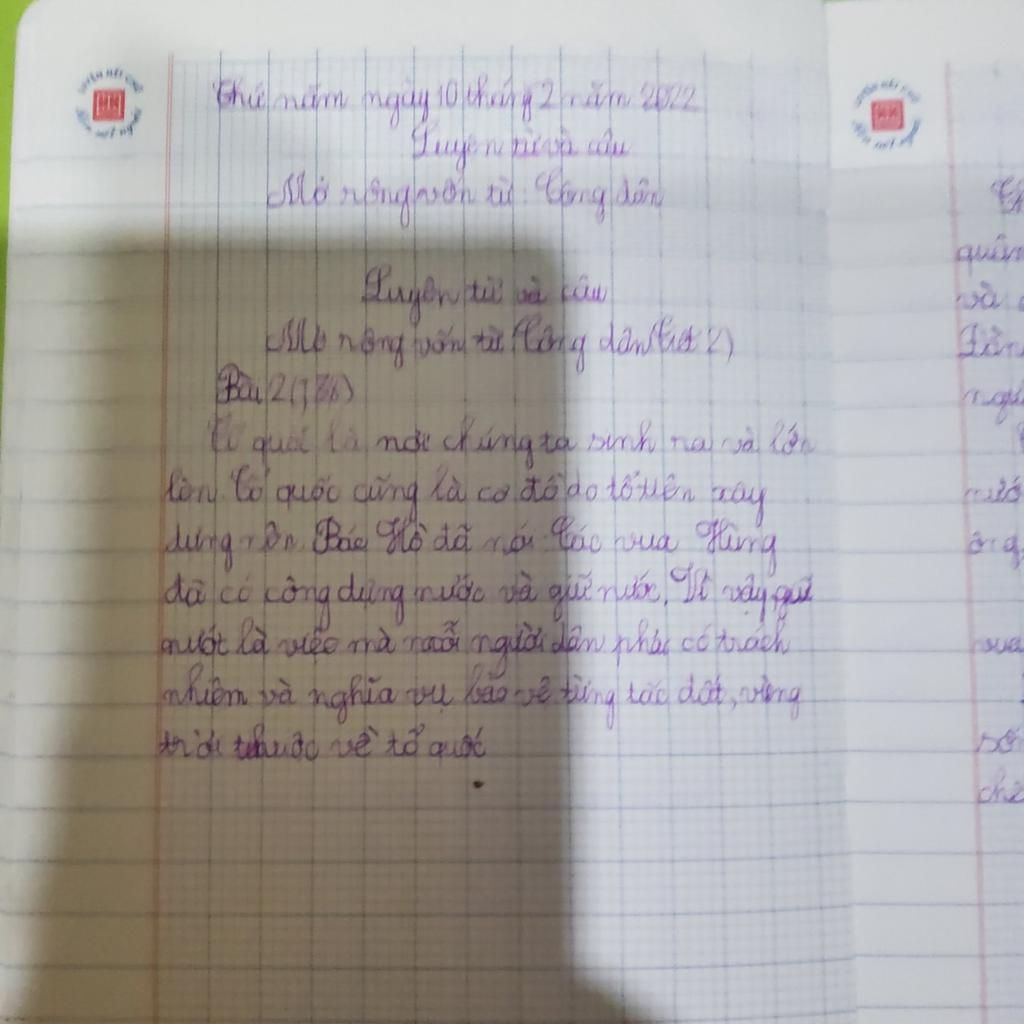 Thứ năm ngày 10 tháng 2 năm 2022
Luyện từ và câu
Mở rộng vốn từ: Công dân
Luyện từ và câu
Mở rộng vốn từ: Công dân (tiết 2)
Bài 2
Tổ quốc là nơi chúng ta sinh ra và lớn
lên. Tổ quốc cũng là cơ đồ do tổ tiên xây
dựng nên. Bác Hồ đã nói: Các vua Hùng
đã có công dựng nước và giữ nước. Vì vậy, giữ
nước là việc mà mỗi người dân phải có trách
nhiệm và nghĩa vụ bảo vệ từng tấc đất, vùng
trời thuộc về tổ quốc
và